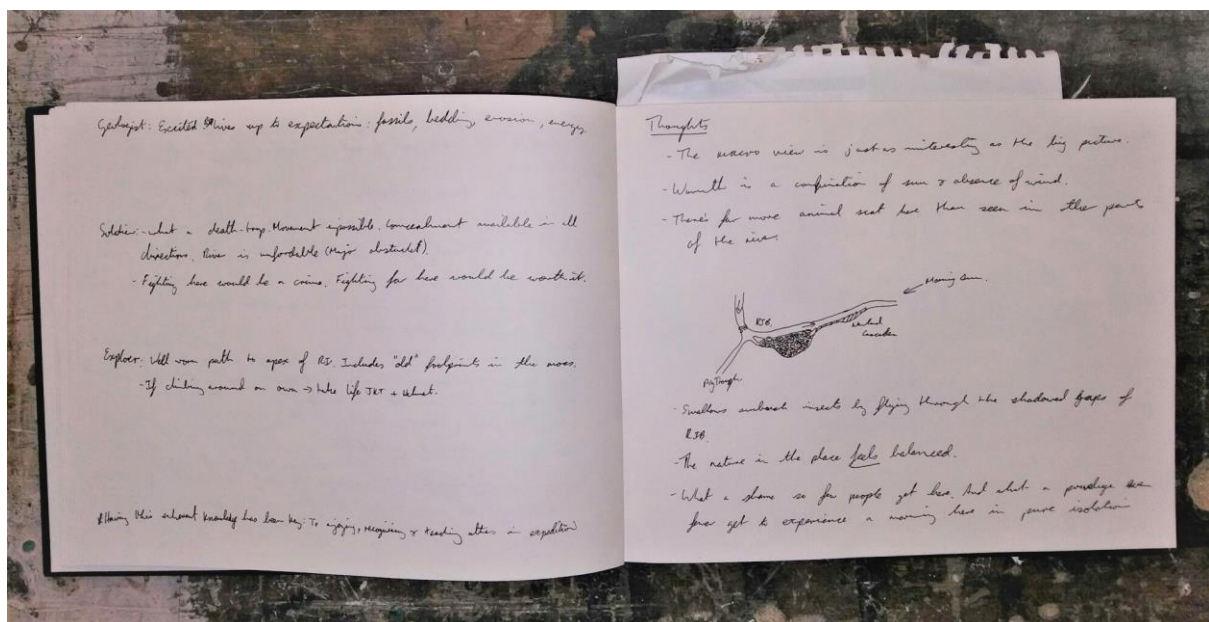 Geologist: Excited lives up to expectations: fossils, bedding, erosion, energy
Soldier: - what a death-trap. Movement impossible. Concealment available in all
directions. River is unfordable (Major obstacle!).
- Fighting here would be a crime. Fighting for here would be worth it.
Explorer: Well worn path to apex of RI. Includes "old" footprints in the moss.
- If climbing around on own → take life JKT + helmet.
Having this inherent knowledge has been key: To enjoying, recognising & teaching others in expedition
Thoughts
- The macro view is just as interesting as the big picture.
- Warmth is a combination of sun & absence of wind.
- There's far more animal scat here than seen in other parts
of the river.
Morning Sun.
RIB.
Pig Trough.
- Swallows ambush insects by flying through the shadowed gaps of
RIB.
- The nature in the place feels balanced.
- What a shame so few people get here. And what a privilege even
fewer get to experience a morning here in pure isolation